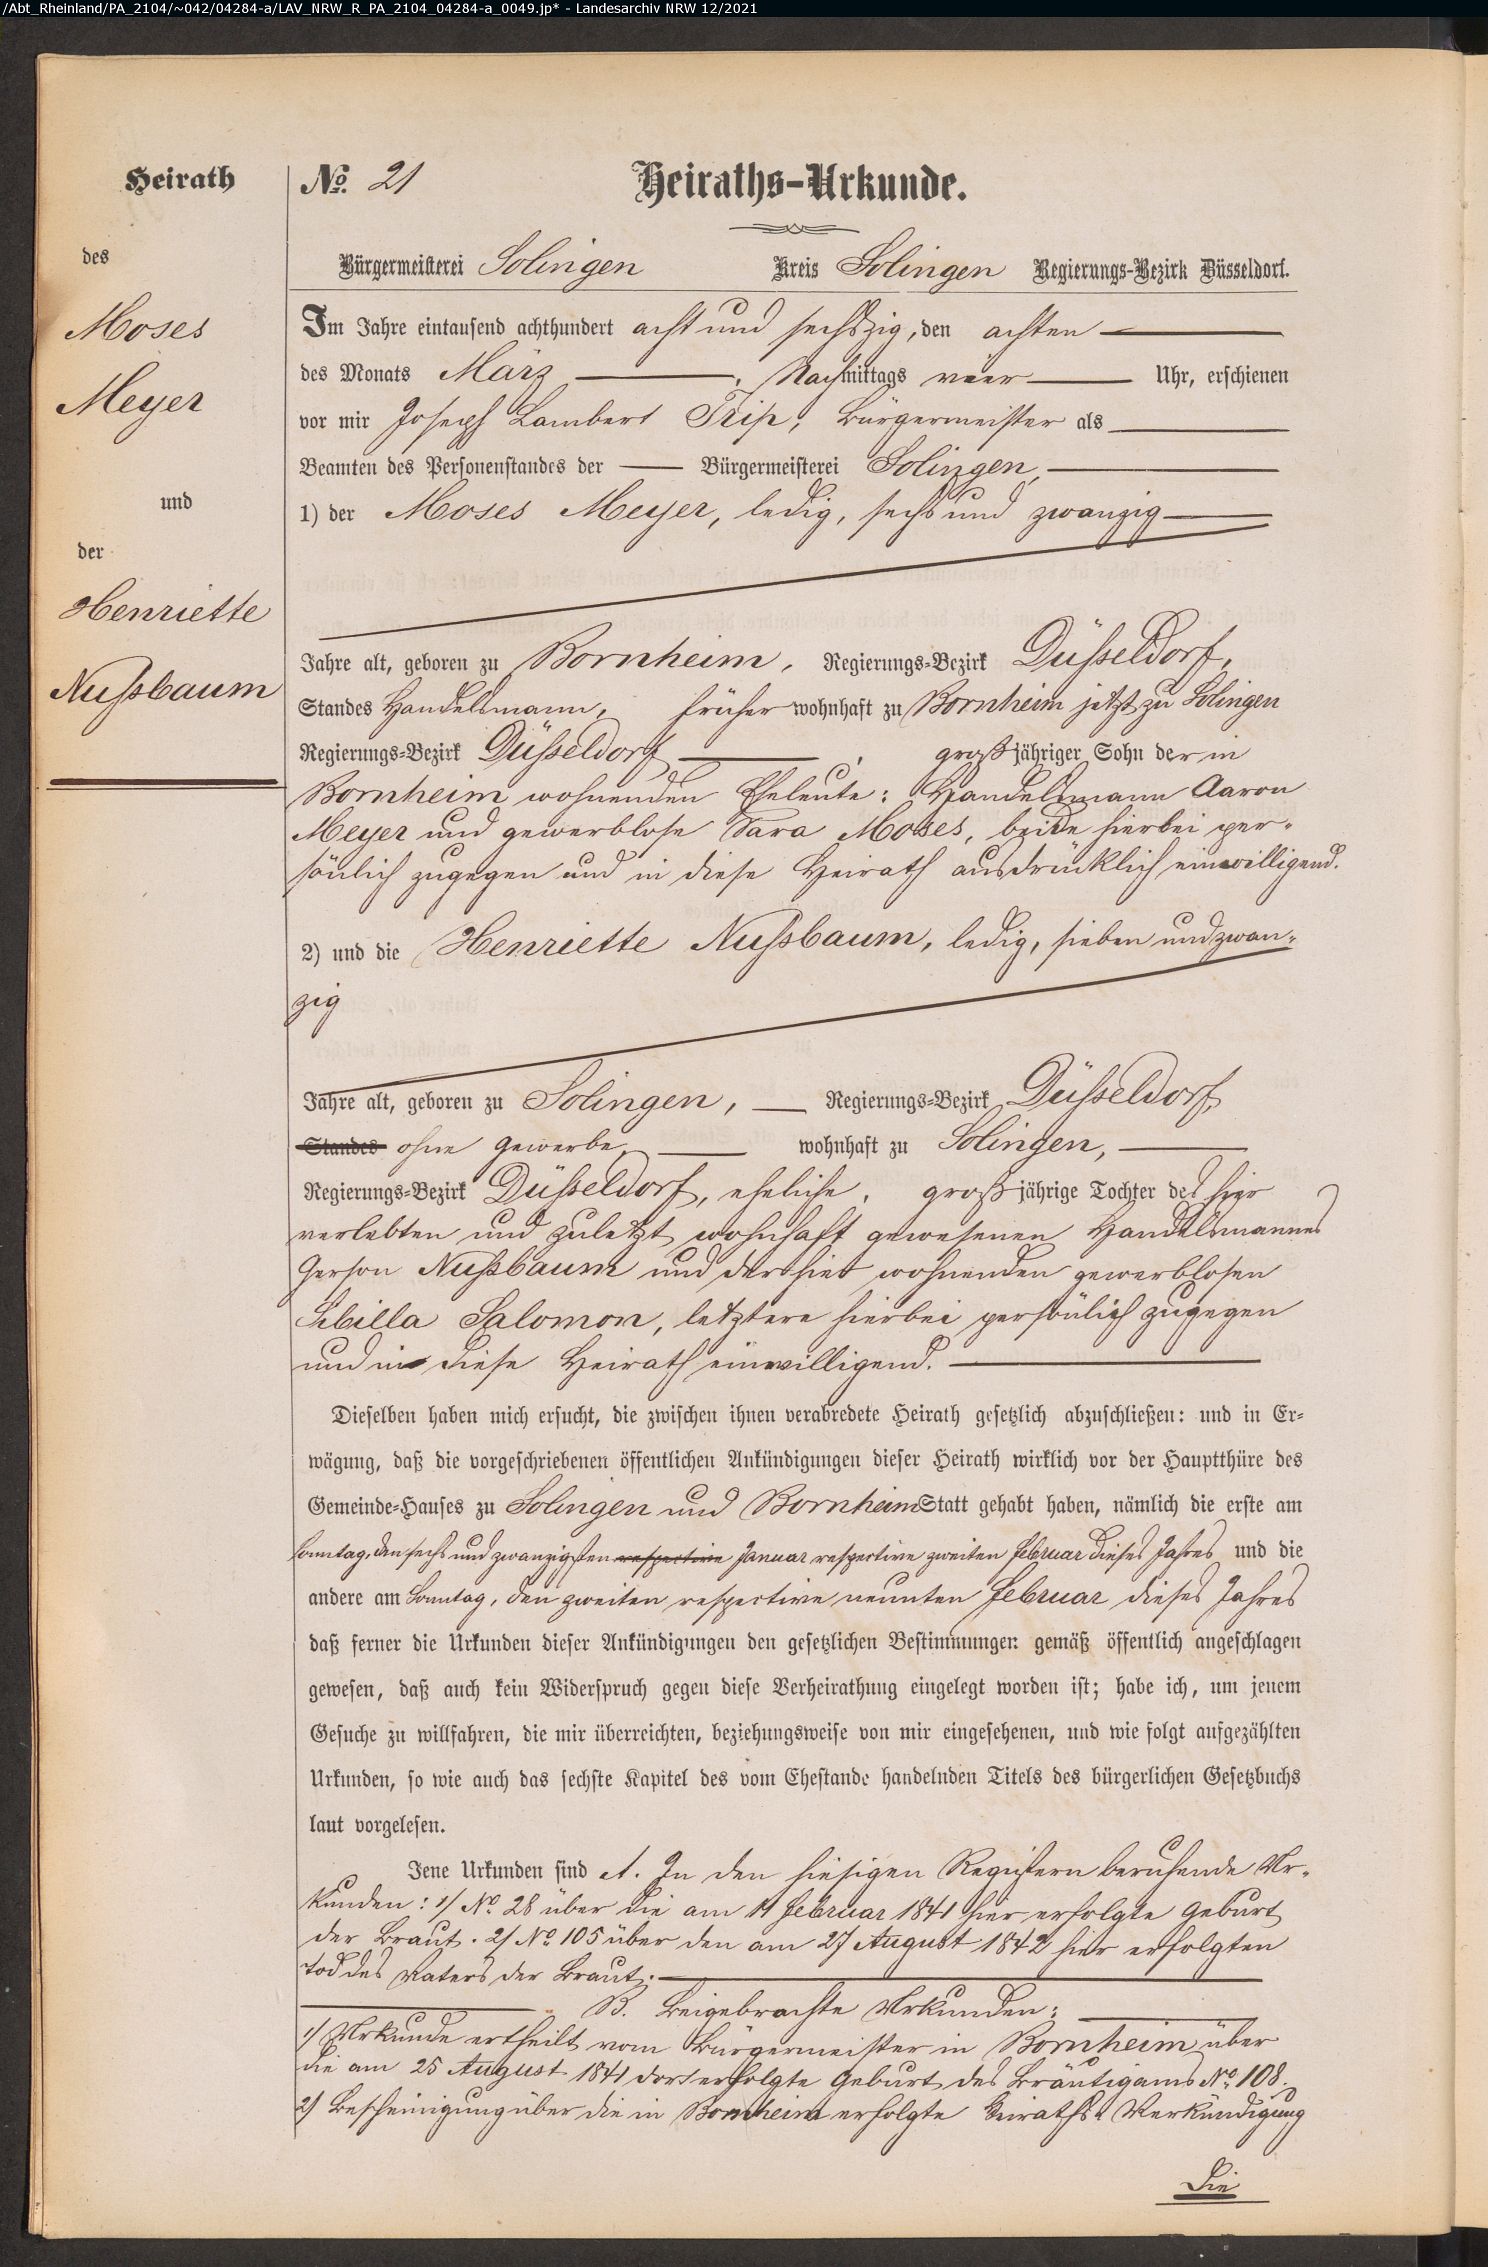 /Abt_Rheinland/PA_2104/~042/04284-a/LAV_NRW_R_PA_2104_04284-a_0049.jp* - Landesarchiv NRW 12/2021
Heirath
des
Moses
Meyer
und
der
Henriette
Nußbaum
No. 21
Heiraths-Urkunde.
Bürgermeisterei Solingen Kreis Solingen Regierungs-Bezirk Düsseldorf.
Im Jahre eintausend achthundert acht und sechszig, den achten
des Monats März, Nachmittags vier Uhr, erschienen
vor mir Joseph Lambert Trip, Bürgermeister als
Beamten des Personenstandes der Bürgermeisterei Solingen,
1) der Moses Meyer, ledig, sechs und zwanzig
Jahre alt, geboren zu Bornheim, Regierungs-Bezirk Düsseldorf,
Standes Handelsmann, früher wohnhaft zu Bornheim jetzt zu Solingen
Regierungs-Bezirk Düsseldorf, großjähriger Sohn der in
Bornheim wohnenden Eheleute: Handelsmann Aaron
Meyer und gewerblose Sara Moses, beide hierbei per-
sönlich zugegen und in diese Heirath ausdrücklich einwilligend.
2) und die Henriette Nußbaum, ledig, sieben und zwan-
zig
Jahre alt, geboren zu Solingen, Regierungs-Bezirk Düsseldorf,
Standes ohne Gewerbe, wohnhaft zu Solingen,
Regierungs-Bezirk Düsseldorf, eheliche, großjährige Tochter des hier
verlebten und zuletzt wohnhaft gewesenen Handelsmannes
Gerson Nußbaum und der hier wohnenden gewerblosen
Sibilla Salomon, letztere hierbei persönlich zugegen
und in diese Heirath einwilligend.
Dieselben haben mich ersucht, die zwischen ihnen verabredete Heirath gesetzlich abzuschließen: und in Er-
wägung, daß die vorgeschriebenen öffentlichen Ankündigungen dieser Heirath wirklich vor der Hauptthüre des
Gemeinde-Hauses zu Solingen und Bornheim Statt gehabt haben, nämlich die erste am
Sonntag, den sechs und zwanzigsten respective Januar respective zweiten Februar dieses Jahres und die
andere am Sonntag, den zweiten respective neunten Februar dieses Jahres
daß ferner die Urkunden dieser Ankündigungen den gesetzlichen Bestimmungen gemäß öffentlich angeschlagen
gewesen, daß auch kein Widerspruch gegen diese Verheirathung eingelegt worden ist; habe ich, um jenem
Gesuche zu willfahren, die mir überreichten, beziehungsweise von mir eingesehenen, und wie folgt aufgezählten
Urkunden, so wie auch das sechste Kapitel des vom Ehestande handelnden Titels des bürgerlichen Gesetzbuchs
laut vorgelesen.
Jene Urkunden sind A. In den hiesigen Registern beruhende Ur-
kunden: 1/ No. 28 über die am 11 Februar 1841 hier erfolgte Geburt
der Braut. 2/ No. 105 über den am 27 August 1842 hier erfolgten
Tod des Vaters der Braut.
B. Beigebrachte Urkunden:
1/ Urkunde ertheilt vom Bürgermeister in Bornheim über
die am 25 August 1841 dort erfolgte Geburt des Bräutigams No. 108.
2) Bescheinigung über die in Bornheim erfolgte Heiraths Verkündigung
Die